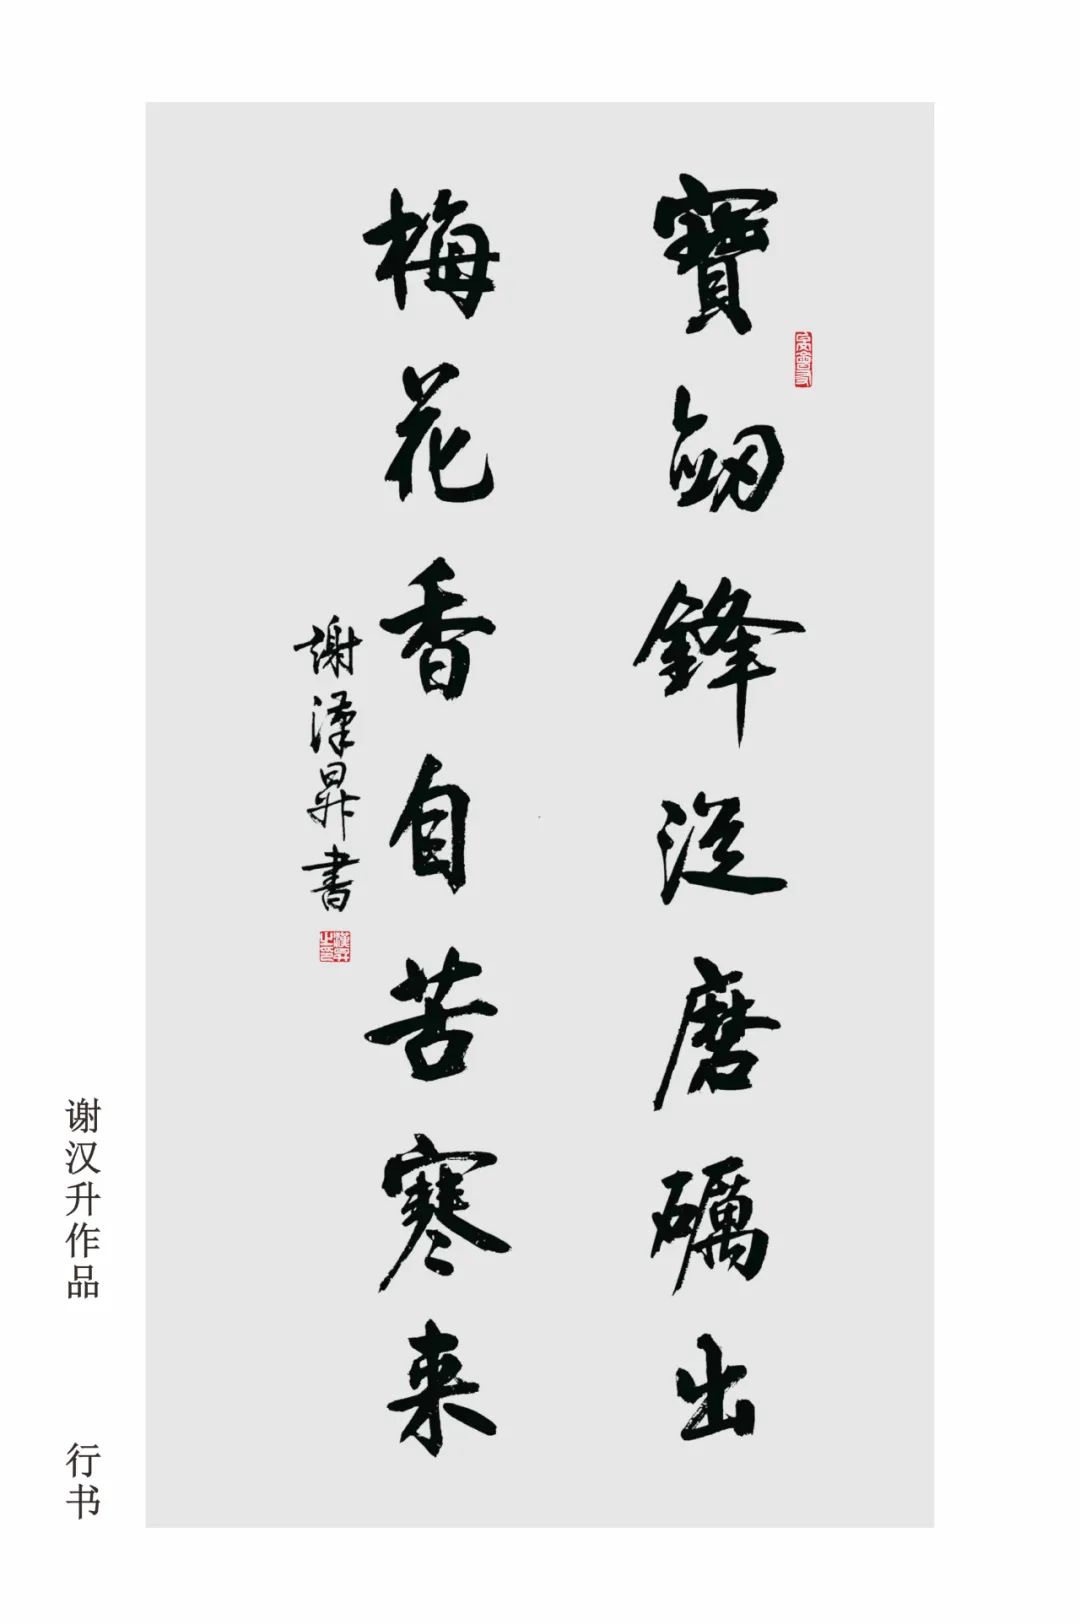 寶劒鋒從磨礪出
梅花香自苦寒來
謝漢昇書
漢昇之印
谢汉升作品
行书